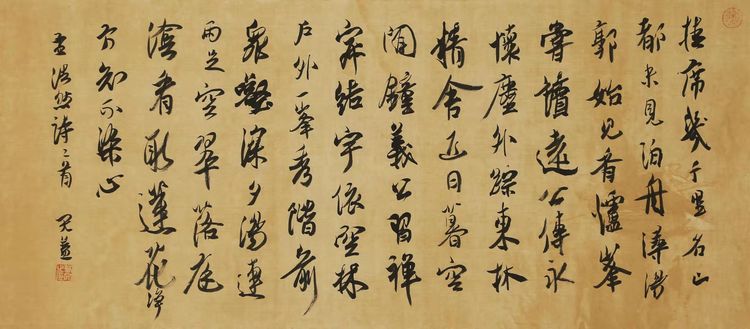 挂席幾千里名山
都未見泊舟潯陽
郭始見香爐峯
嘗讀遠公傳永
懷塵外蹤東林
精舍近日暮空
聞鐘義公習禪
寂結宇依空林
戶外一峯秀階前
衆壑深夕陽連
雨足空翠落庭
陰看取蓮花淨
方知不染心
孟浩然詩二首